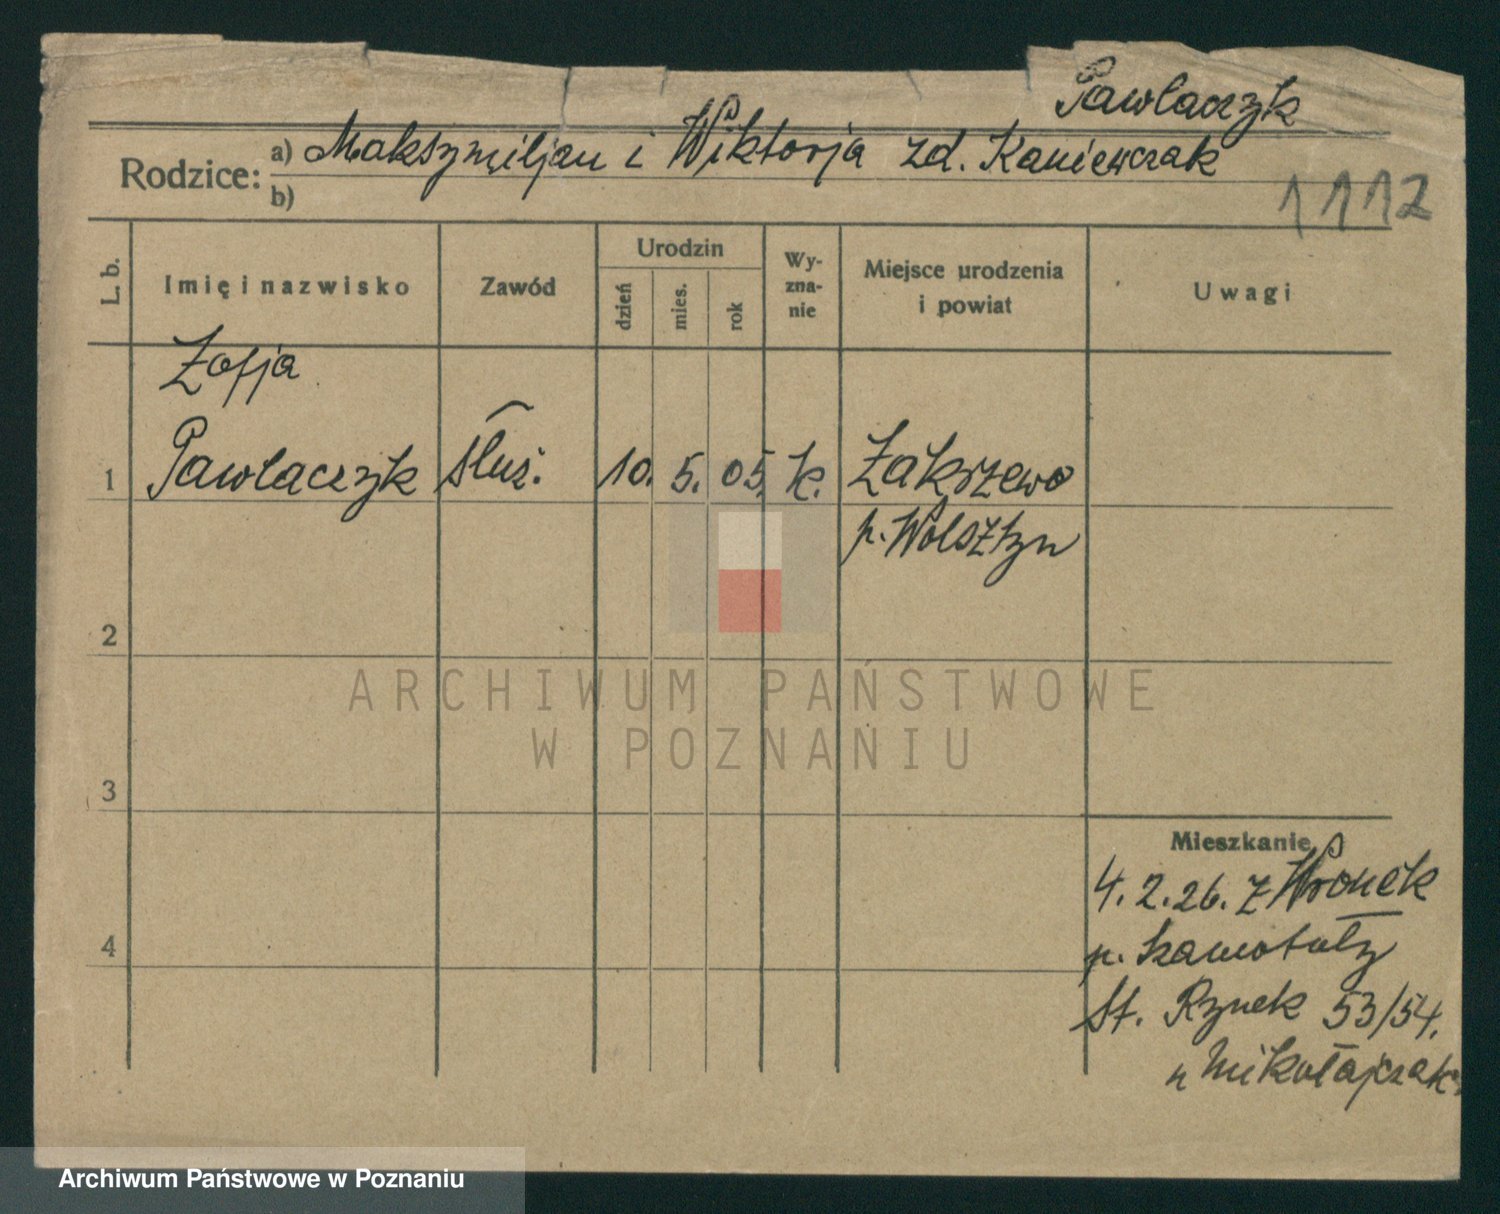 Pawlaczyk
Rodzice: a) Maksymiljan i Wiktorja zd. Kaniewczak
b)
1112
L. b.
Imię i nazwisko
Zawód
Urodzin
dzień
mies.
rok
Wy-
zna-
nie
Miejsce urodzenia
i powiat
Uwagi
Zofja
1 Pawlaczyk służ. 10. 5. 05. k. Zakrzewo
p. Wolsztyn
2
3
4
Mieszkanie
4.2.26. z Wronek
p. Szamotuły
St. Rynek 53/54.
u Mikołajczak
ARCHIWUM PAŃSTWOWE
W POZNANIU
Archiwum Państwowe w Poznaniu